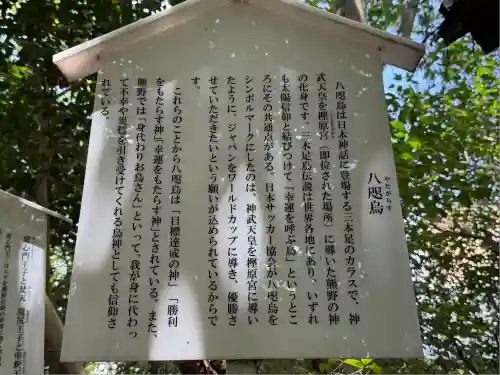 八咫烏
やたがらす
八咫烏は日本神話に登場する三本足のカラスで、神
武天皇を橿原宮(即位された場所)に導いた熊野の神
の化身です。三本足烏伝説は世界各地にあり、いずれ
も太陽信仰と結びつけて「幸運を呼ぶ烏」というとこ
ろにその共通点がある。日本サッカー協会が八咫烏を
シンボルマークにしたのは、神武天皇を橿原宮に導い
たように、ジャパンをワールドカップに導き、優勝さ
せていただきたいという願いが込められているからで
す。
これらのことから八咫烏は「目標達成の神」「勝利
をもたらす神」「幸運をもたらす神」とされている。また、
熊野では「身代わりお烏さん」といって、我が身に代わっ
て不幸や災難を引き受けてくれる烏神としても信仰さ
れている。